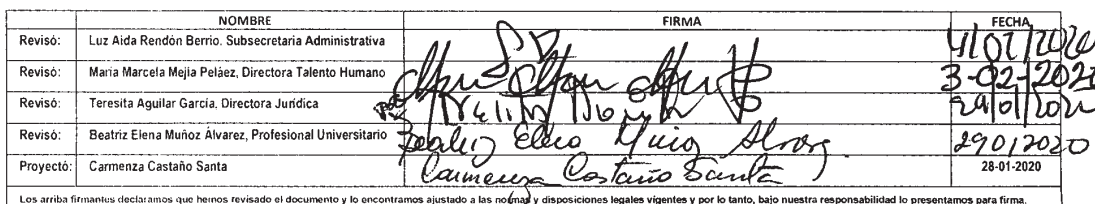 NOMBRE FIRMA FECHA
Revisó: Luz Aida Rendón Berrio. Subsecretaria Administrativa 4/02/2020
Revisó: María Marcela Mejía Peláez, Directora Talento Humano 3-02-202
Revisó: Teresita Aguilar García, Directora Jurídica
Revisó: Beatriz Elena Muñoz Álvarez, Profesional Universitario Beatriz Elena 29012020
Proyectó: Carmenza Castaño Santa Carmenza Castaño Santa 28-01-2020
Los arriba firmantes declaramos que hemos revisado el documento y lo encontramos ajustado a las normas y disposiciones legales vigentes y por lo tanto, bajo nuestra responsabilidad lo presentamos para firma.